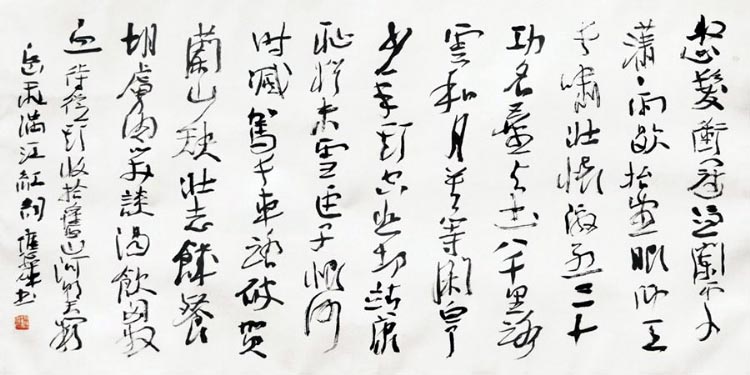 怒髮衝冠憑闌處
瀟瀟雨歇抬望眼仰天
長嘯壯懷激烈三十
功名塵與土八千里路
雲和月莫等閑白了
少年頭空悲切靖康
恥猶未雪臣子恨何
時滅駕長車踏破賀
蘭山缺壯志飢餐
胡虜肉笑談渴飲匈奴
血待從頭收拾舊山河朝天闕
岳飛滿江紅詞 書